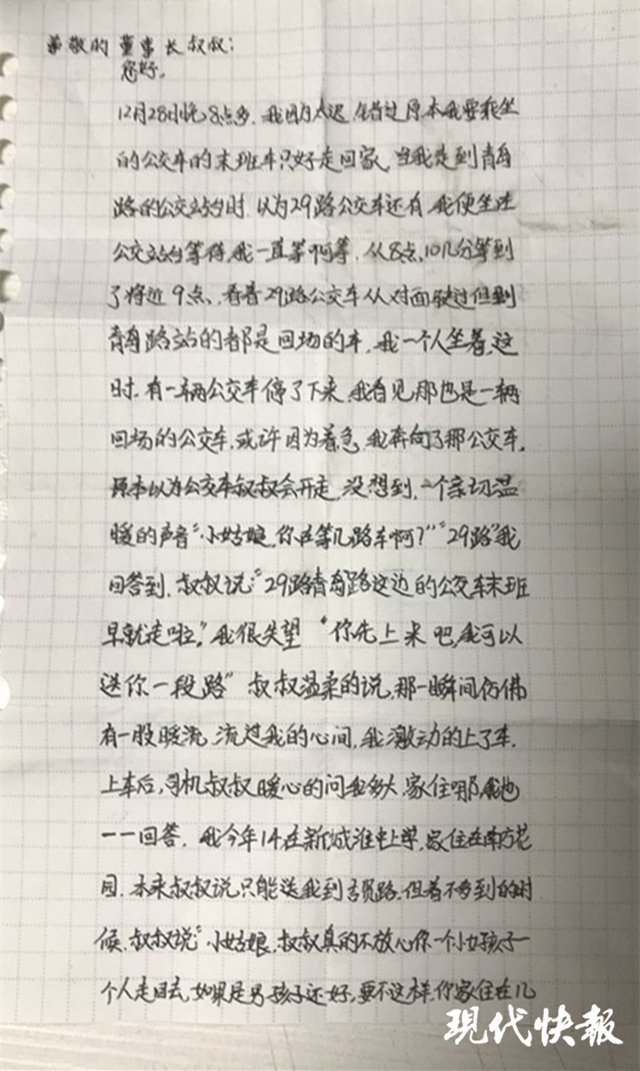 尊敬的董事长叔叔：
您好。
12月28日晚8点多，我因为太迟，错过原本我要乘坐
的公交车的末班车只好走回家，当我走到青
路的公交站台时，以为29路公交车还有，我便坐在
公交站台等待，我一直等啊等，从8点10几分等到
了将近9点，看着29路公交车从对面驶过但到
青 路站的都是回场的车，我一个人坐着，这
时，有一辆公交车停了下来，我看见那也是一辆
回场的公交车，或许因为着急，我奔向了那公交车，
原本以为公交车叔叔会开走，没想到，一个亲切温
暖的声音“小姑娘，你在等几路车啊？”“29路”我
回答到，叔叔说：“29路青 路这边的公交车末班
早就走啦，”我很失望 “你先上来吧，我可以
送你一段路” 叔叔温柔的说，那一瞬间仿佛
有一股暖流，流过我的心间，我激动的上了车，
上车后，司机叔叔暖心的问我多大，家住哪，我也
一一回答，我今年14在新城淮中上学，家住在南方花
园，本来叔叔说只能送我到 路，但着不多到的时
候，叔叔说“小姑娘，叔叔真的不放心你一个小女孩子一
个人走回去，如果是男孩子还好，要不这样，你家住在几
现代快報